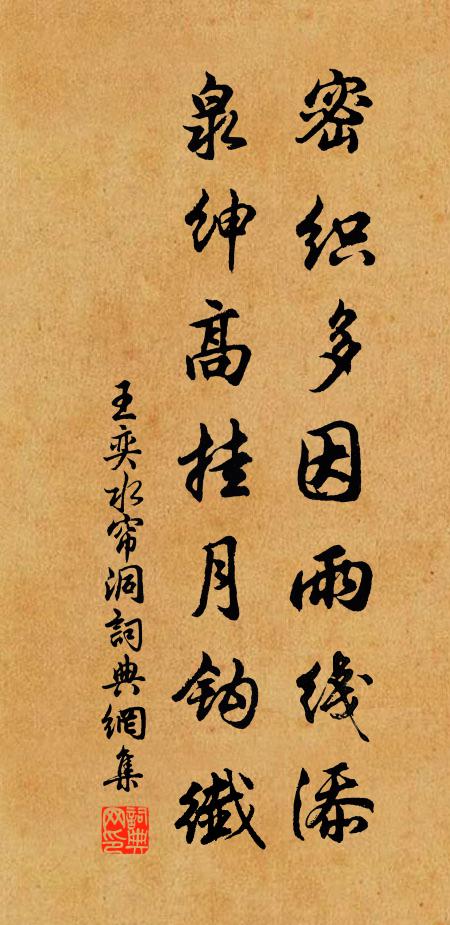 密织多因雨线添
泉绅高挂月钩纖
王奕水帘洞詞典網集
詞典网印